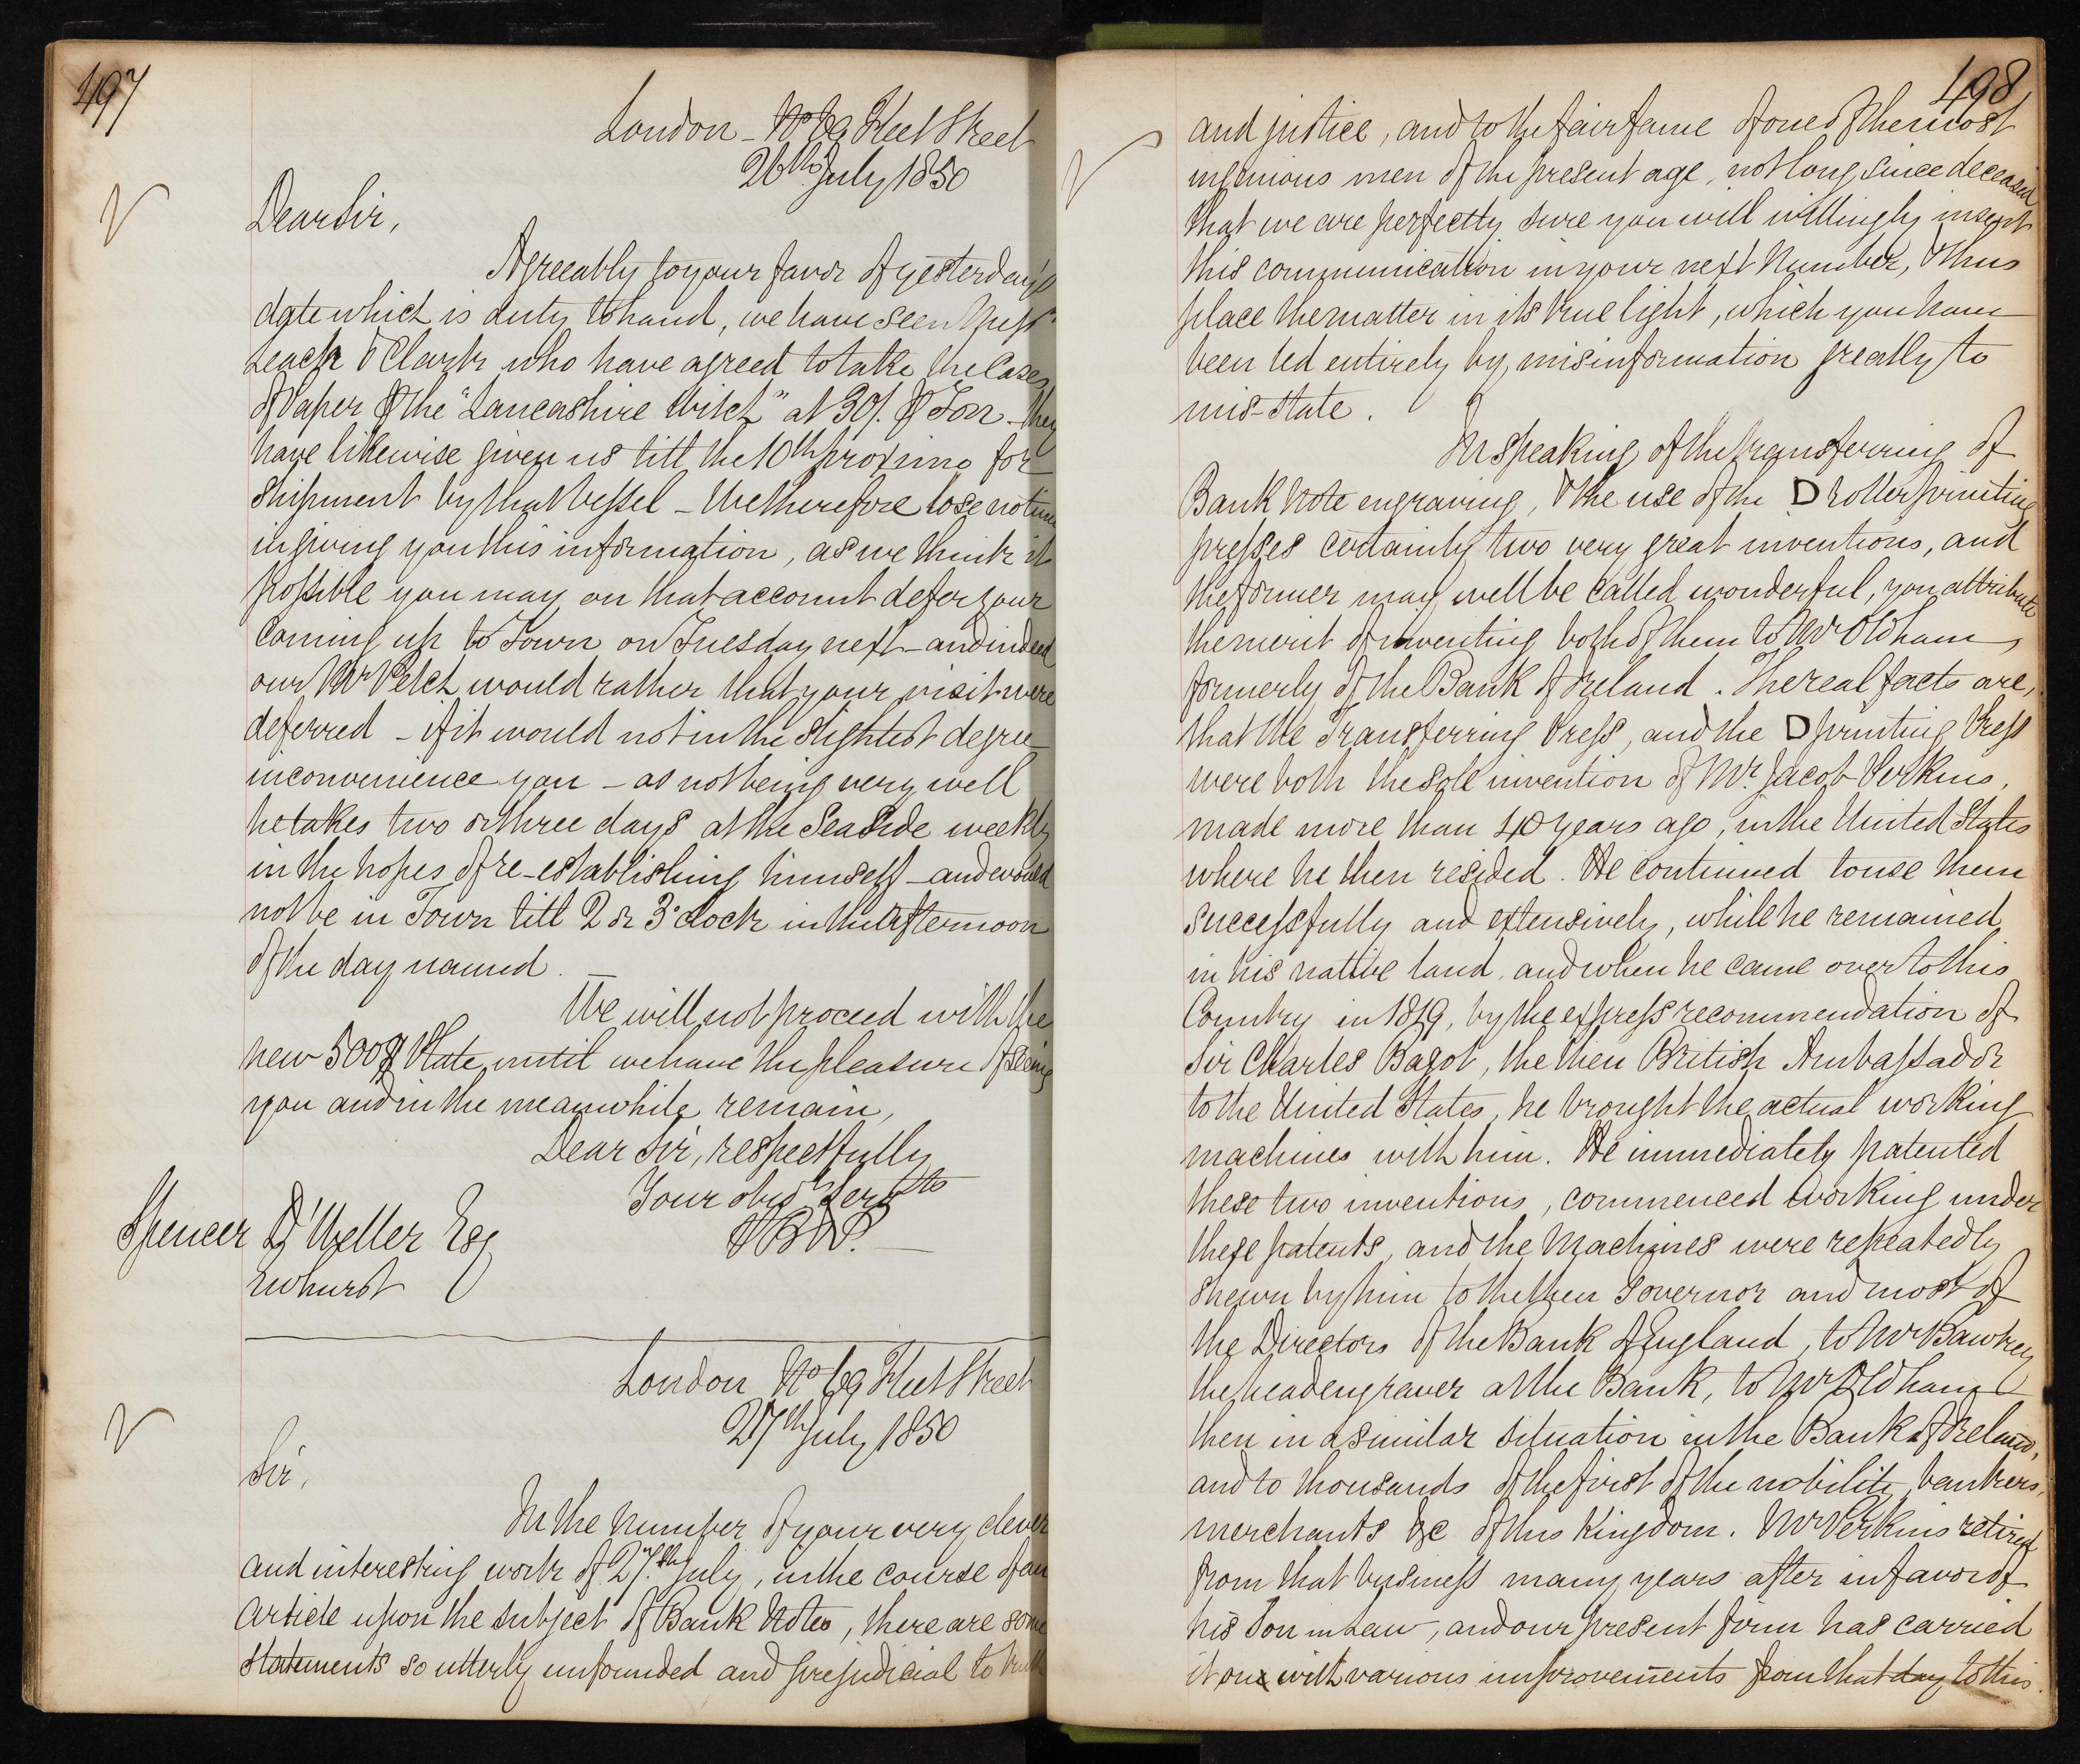 497
London - No 69 Fleet Street
26th July 1850
Dear Sir,
Agreeably to your favor of yesterday's
date which is duly to hand, we have seen Messrs
Leach & Clark who have agreed to take the Cases
of Paper p the "Lancashire Witch" at 30/. p Ton. - they
have likewise given us till the 10th proximo for
shipment by that vessel - We therefore lose no time
in giving you this information, as we think it
possible you may on that account defer your
coming up to Town on Tuesday next - and indeed
our Mr Petch would rather that your visit were
deferred - if it would not in the slightest degree
inconvenience you - as not being very well
he takes two or three days at the Sea Side weekly
in the hopes of re-establishing himself - and would
not be in Town till 2 or 3 o'clock in the afternoon
of the day named. —
We will not proceed with the
new 500 Plate until we have the pleasure of seeing
you and in the meanwhile remain,
Dear Sir, respectfully
Your obedt Servts
PB&P. —
Spencer Weller Esq
Ewhurst
London No 69 Fleet Street
27th July 1850
Sir,
In the Number of your very clever
and interesting work of 27th July, in the course of an
Article upon the subject of Bank Notes, there are some
statements so utterly unfounded and prejudicial to truth
498
and justice, and to the fair fame of one of the most
ingenious men of the present age, not long since deceased
that we are perfectly sure you will willingly insert
this communication in your next Number, & thus
place the matter in its true light, which you have
been led entirely by misinformation greatly to
mis-state.
In speaking of the transferring of
Bank Note engraving, & the use of the D roller printing
presses certainly two very great inventions, and
the former may well be called wonderful, you attribute
the merit of inventing both of them to Mr Oldham,
formerly of the Bank of Ireland. The real facts are,
that the Transferring Press, and the D printing Press
were both the sole invention of Mr. Jacob Perkins,
made more than 40 years ago, in the United States
where he then resided. He continued to use them
successfully and extensively, while he remained
in his native land, and when he came over to this
Country in 1819, by the express recommendation of
Sir Charles Bagot, the then British Ambassador
to the United States, he brought the actual working
machines with him. He immediately patented
these two inventions, commenced working under
these patents, and the Machines were repeatedly
shewn by him to the then Governor and most of
the Directors of the Bank of England, to Mr Bawtrey
the head engraver at the Bank, to Mr Oldham
then in a similar situation in the Bank of Ireland,
and to thousands of the first of the nobility, bankers,
merchants &c of this Kingdom. Mr Perkins retired
from that business many years after in favor of
his Son in Law, and our present firm has carried
it on with various improvements from that day to this.